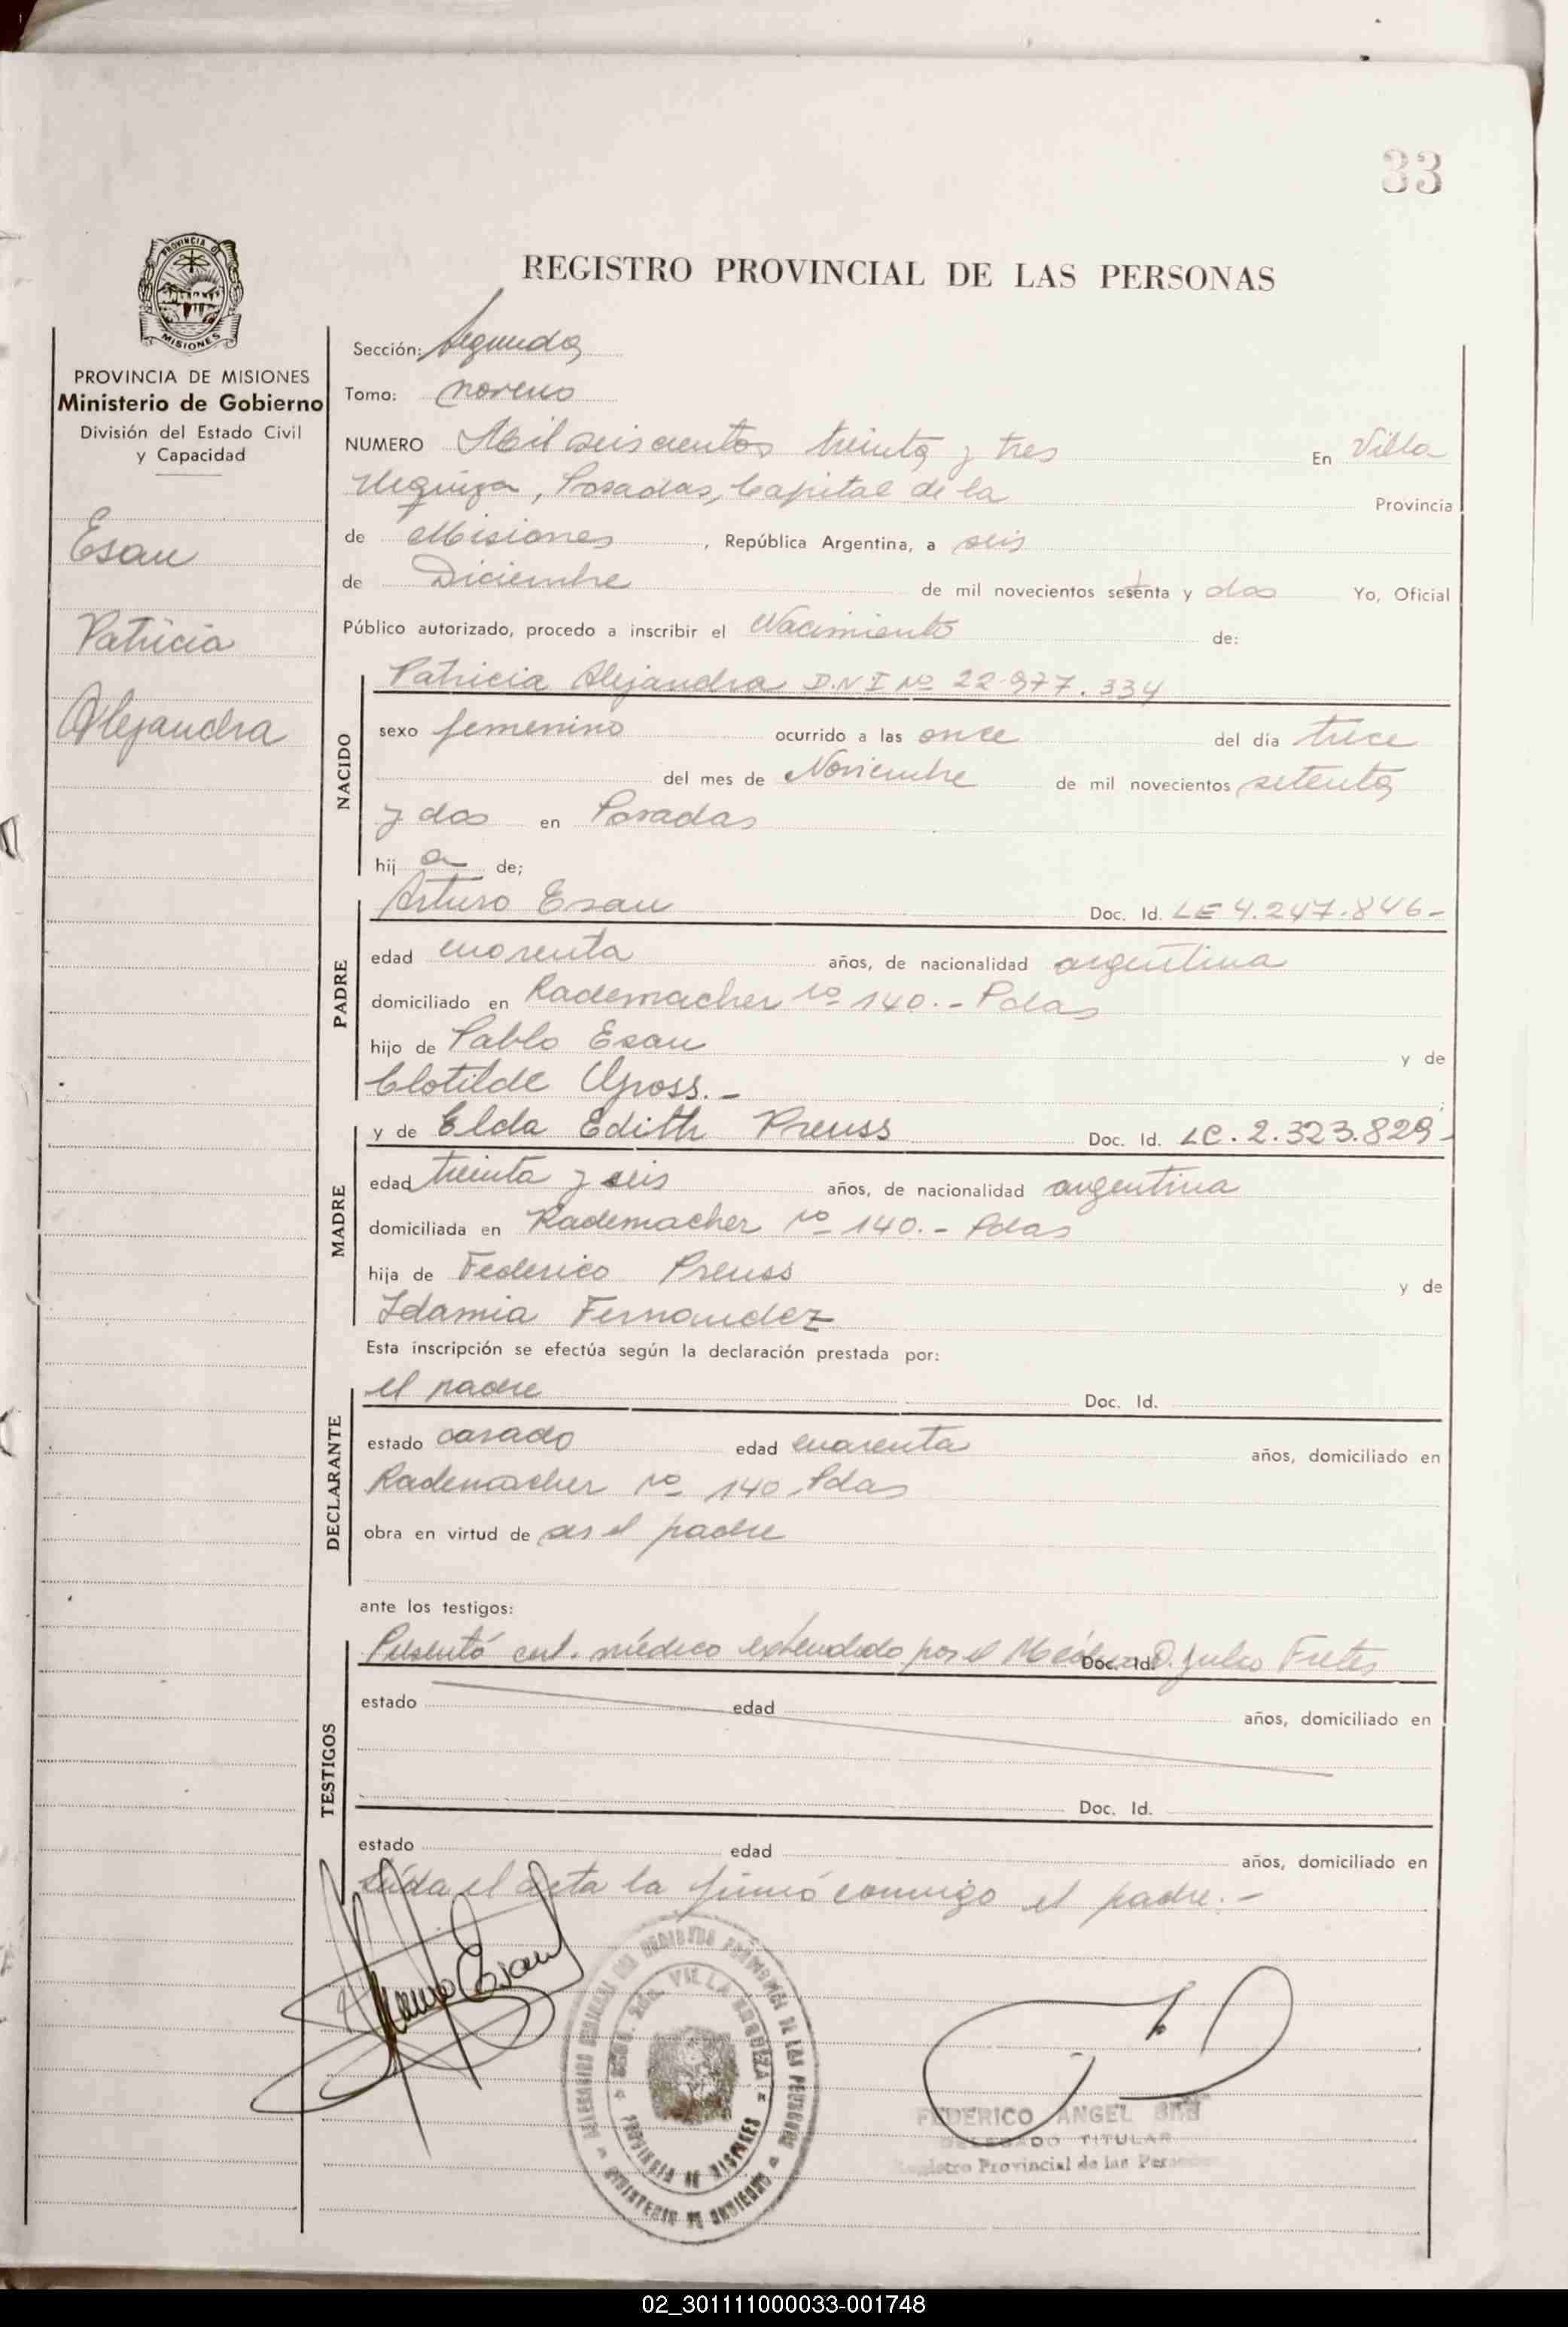 33
PROVINCIA DE
MISIONES
REGISTRO PROVINCIAL DE LAS PERSONAS
PROVINCIA DE MISIONES
Ministerio de Gobierno
División del Estado Civil
y Capacidad
Esau
Patricia
Alejandra
Sección: Segunda
Tomo: noveno
NUMERO Mil seiscientos treinta y tres En Villa
Urquiza, Posadas, Capital de la Provincia
de Misiones, República Argentina, a seis
de Diciembre de mil novecientos setenta y dos Yo, Oficial
Público autorizado, procedo a inscribir el Nacimiento de:
NACIDO
Patricia Alejandra D.N.I Nº 22.977.334
sexo femenino ocurrido a las once del día trece
del mes de Noviembre de mil novecientos setenta
y dos en Posadas
hij a de;
PADRE
Arturo Esau Doc. Id. LE 4.247.846-
edad cuarenta años, de nacionalidad argentina
domiciliado en Rademacher Nº 140.- Pdas
hijo de Pablo Esau y de
Clotilde Gross.-
MADRE
y de Elda Edith Preuss Doc. Id. LC. 2.323.829-
edad treinta y seis años, de nacionalidad argentina
domiciliada en Rademacher Nº 140.- Pdas
hija de Federico Preuss y de
Idamia Fernandez
Esta inscripción se efectúa según la declaración prestada por:
DECLARANTE
el padre Doc. Id.
estado casado edad cuarenta años, domiciliado en
Rademacher Nº 140 Pdas
obra en virtud de ser el padre
ante los testigos:
TESTIGOS
Presentó cert. médico extendido por el Médico D. Julio Fretes Doc. Id.
estado edad años, domiciliado en
Doc. Id.
estado edad años, domiciliado en
Leída el acta la firmó conmigo el padre.-
Esau
REGISTRO PROVINCIAL DE LAS PERSONAS
VILLA URQUIZA
PROVINCIA DE MISIONES
MINISTERIO DE GOBIERNO
FEDERICO ANGEL
DELEGADO TITULAR
Registro Provincial de las Personas
02_301111000033-001748